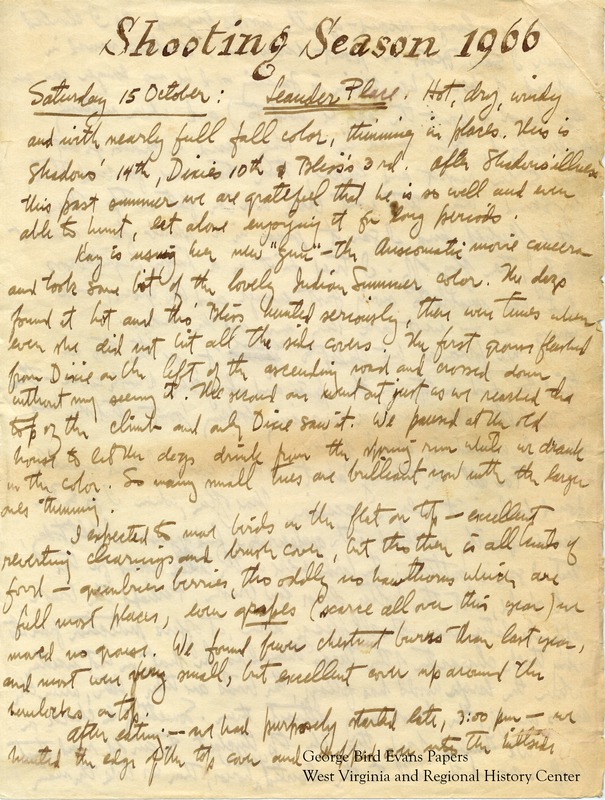 Shooting Season 1966
Saturday 15 October: Leander Place. Hot, dry, windy
and with nearly full fall color, thinning in places. This is
Shadows' 14th, Dixie's 10th & Bliss's 3rd. After Shadows' illness
this past summer we are grateful that he is so well and even
able to hunt, let alone enjoying it for long periods.
Kay is using her new "gun" – the Auscomatic movie camera
and took some bit of the lovely Indian Summer color. The dogs
found it hot and tho' Bliss hunted seriously, there were times when
even she did not hit all the side covers. The first grouse flushed
from Dixie on the left of the ascending road and crossed down
without my seeing it. The second one went out just as we reached the
top of the climb and only Dixie saw it. We paused at the old
house to let the dogs drink from the spring run while we drank
in the color. So many small trees are brilliant now with the larger
ones thinning.
I expected to move birds in the flat on top – excellent
reverting clearings and brush cover, but tho there is all kinds of
food – greenbrier berries, tho oddly no hawthorns which are
full most places, even grapes (scarce all over this year) we
moved no grouse. We found fewer chestnut burrs than last year,
and most were very small, but excellent cover up around the
hemlocks on top.
After eating – we had purposely started late, 3:00 pm – we
hunted the edge of the top cover and over into the hillside
George Bird Evans Papers
West Virginia and Regional History Center